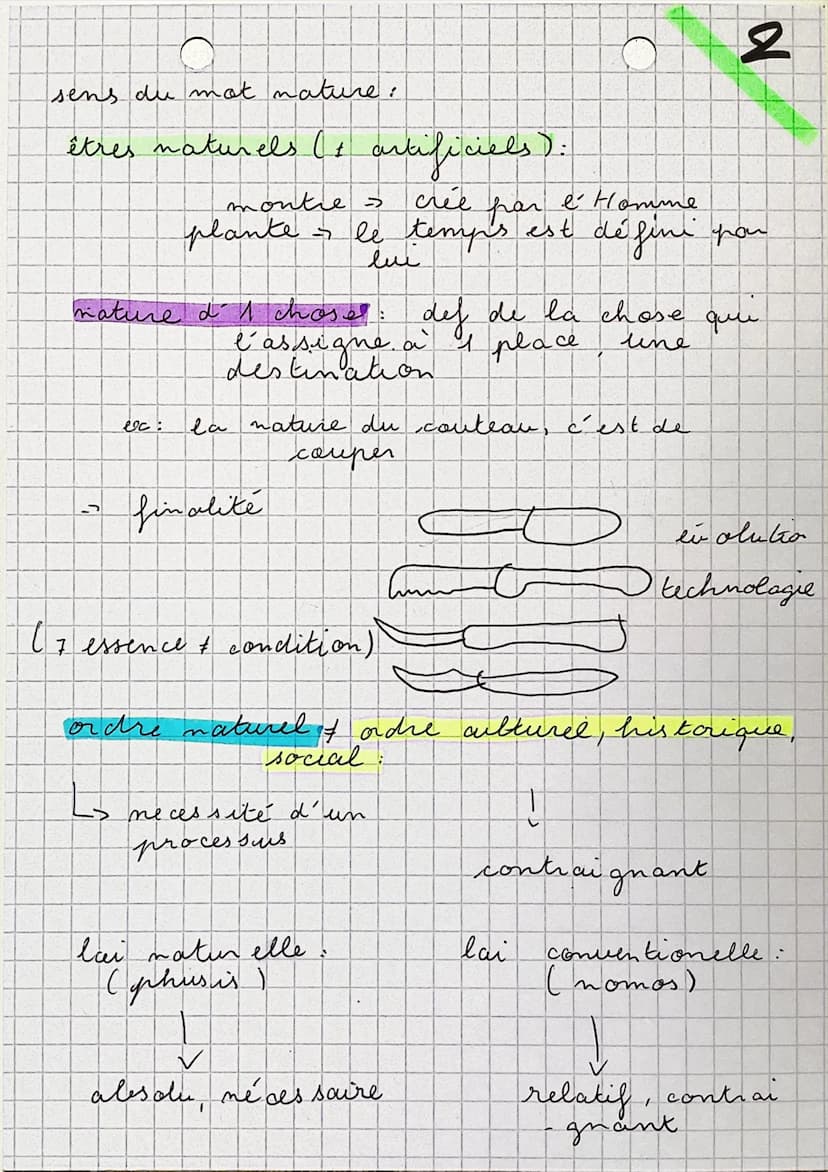 2
sens du mot nature :
êtres naturels ( ≠ artificiels ) :
montre → crée par l'Homme
plante → le temps est défini par
lui
nature d'1 chose : def de la chose qui
l'assigne à 1 place, une
destination
ex : la nature du couteau, c'est de
couper
→ finalité
évolutio
technologie
( essence ≠ condition)
ordre naturel ≠ ordre culturel, historique,
social :
↳ necessité d'un
processus
↓
contraignant
loi naturelle :
( phusis )
loi conventionelle :
( nomos )
↓
↓
absolu, nécessaire
relatif, contrai
- gnant